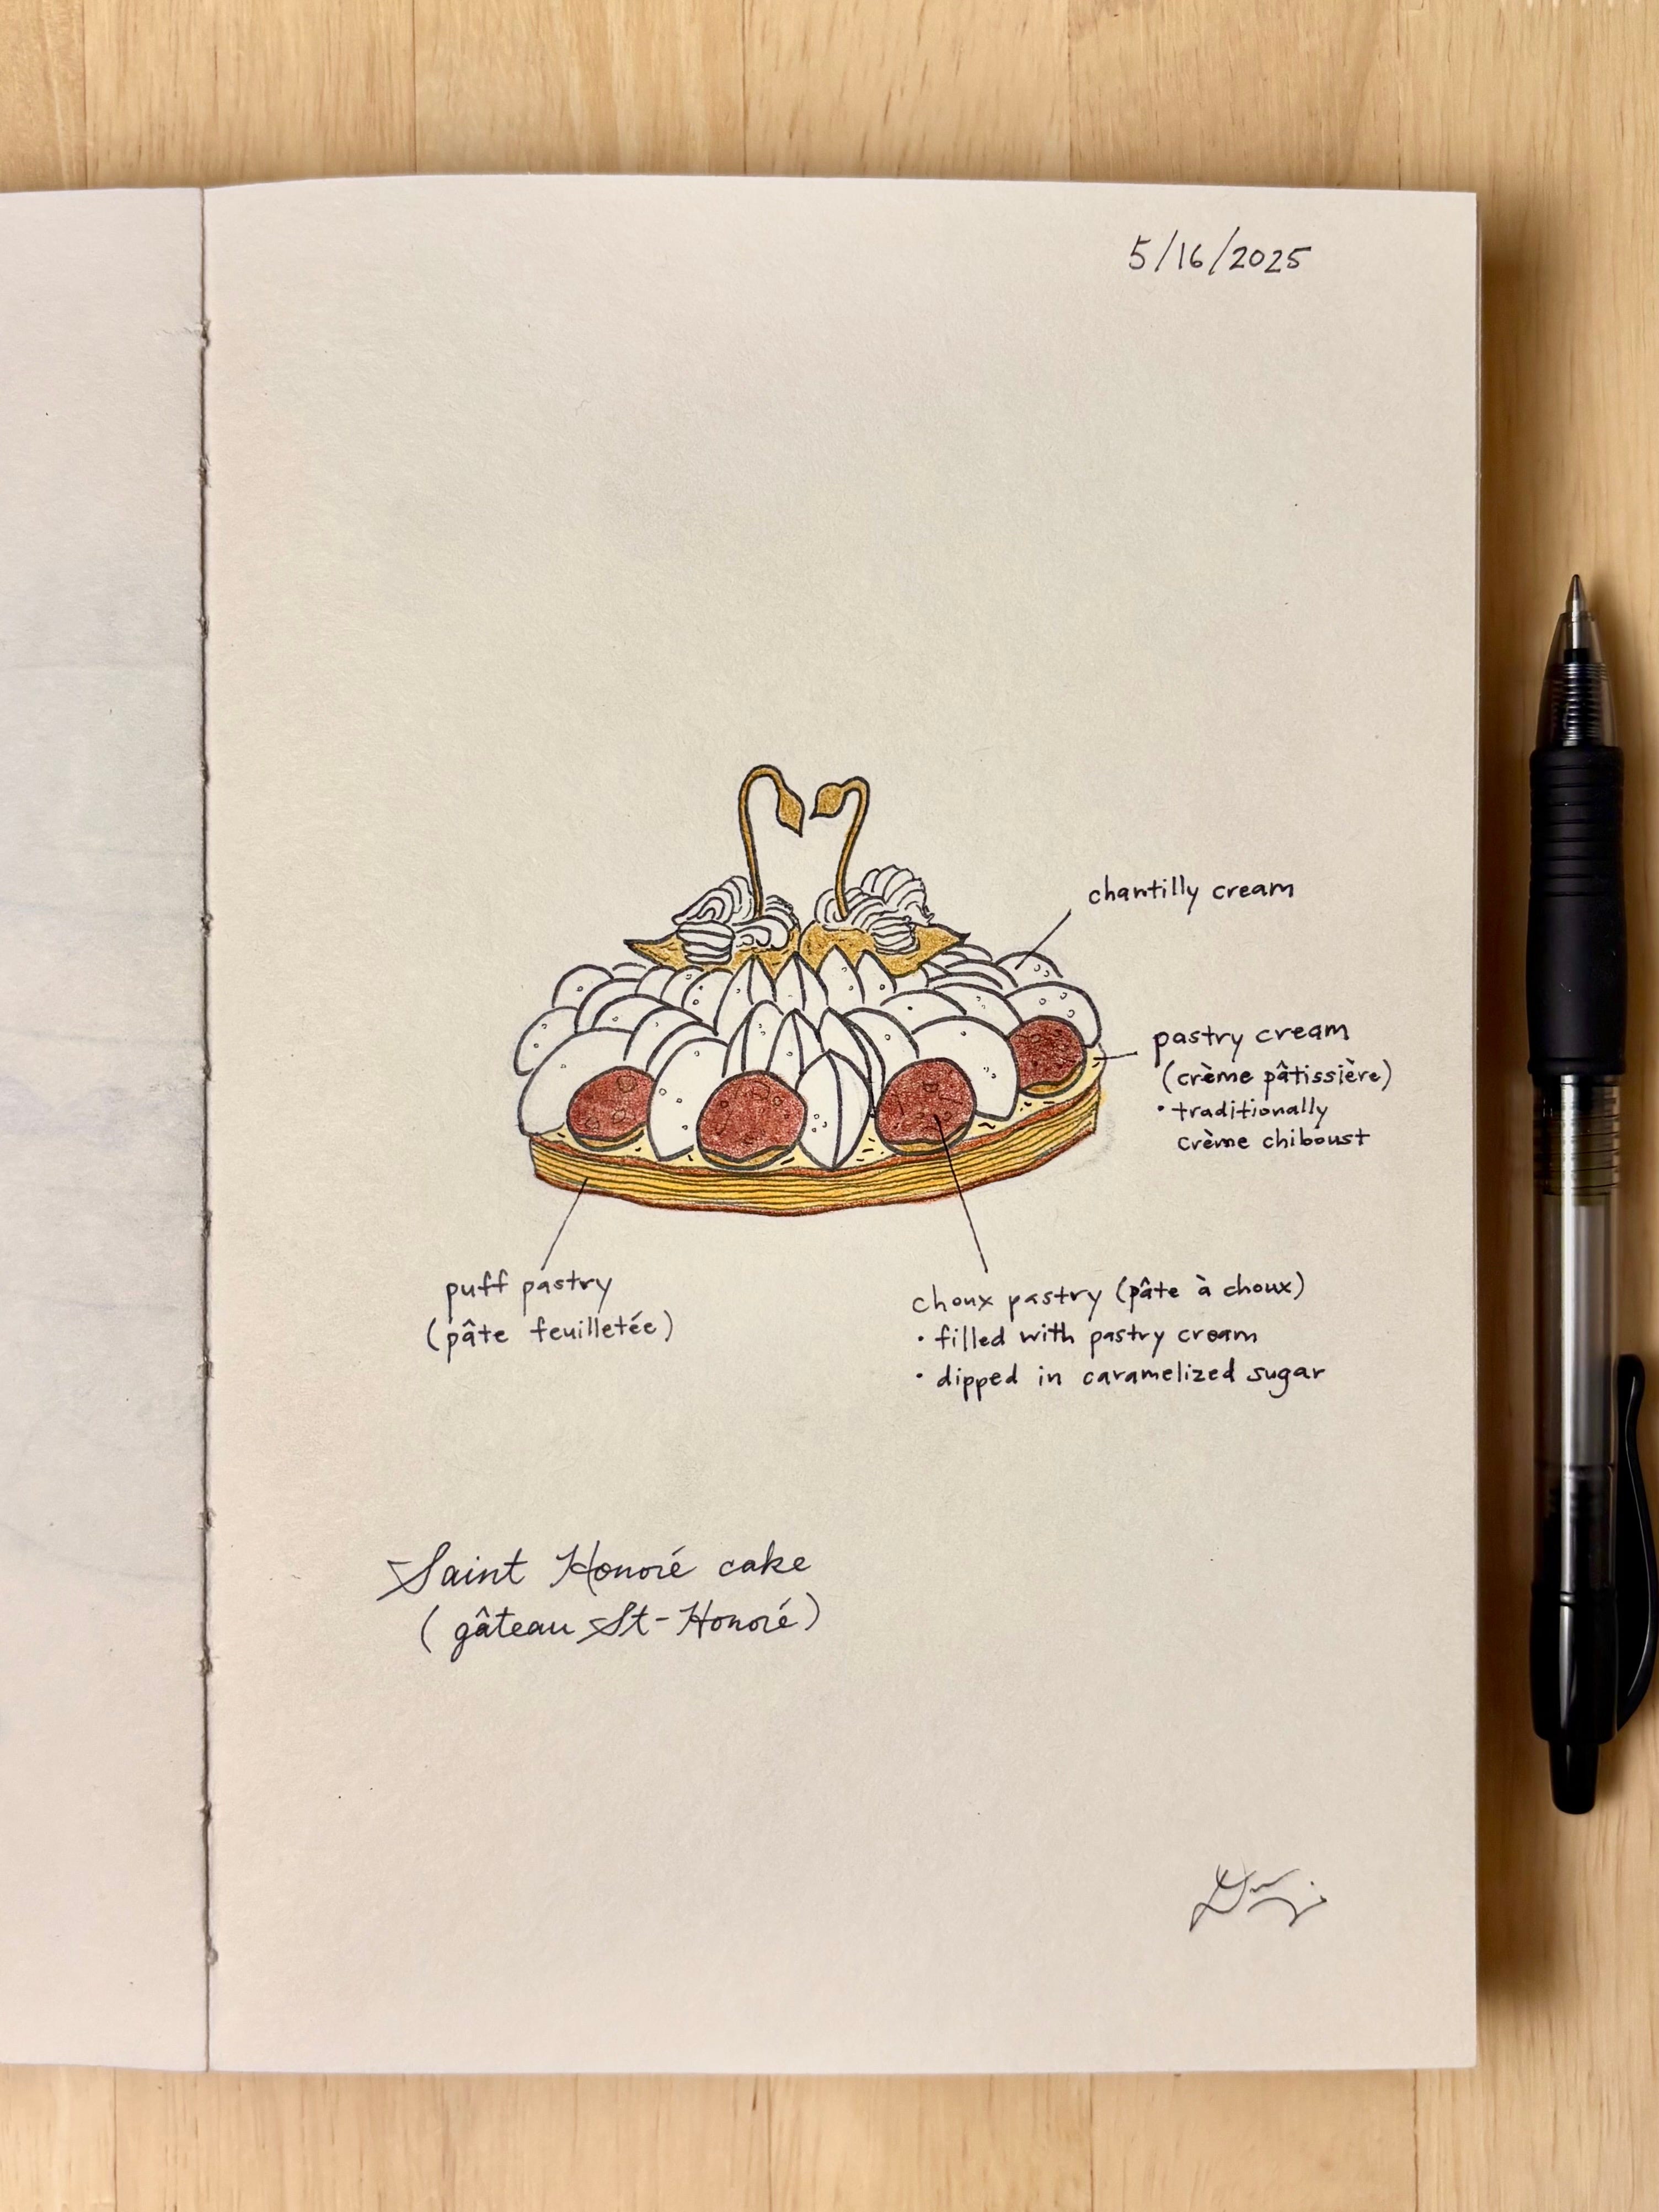 5/16/2025
chantilly cream
pastry cream
(crème pâtissière)
• traditionally
crème chiboust
puff pastry
(pâte feuilletée)
choux pastry (pâte à choux)
• filled with pastry cream
• dipped in caramelized sugar
Saint Honoré cake
(gâteau St-Honoré)